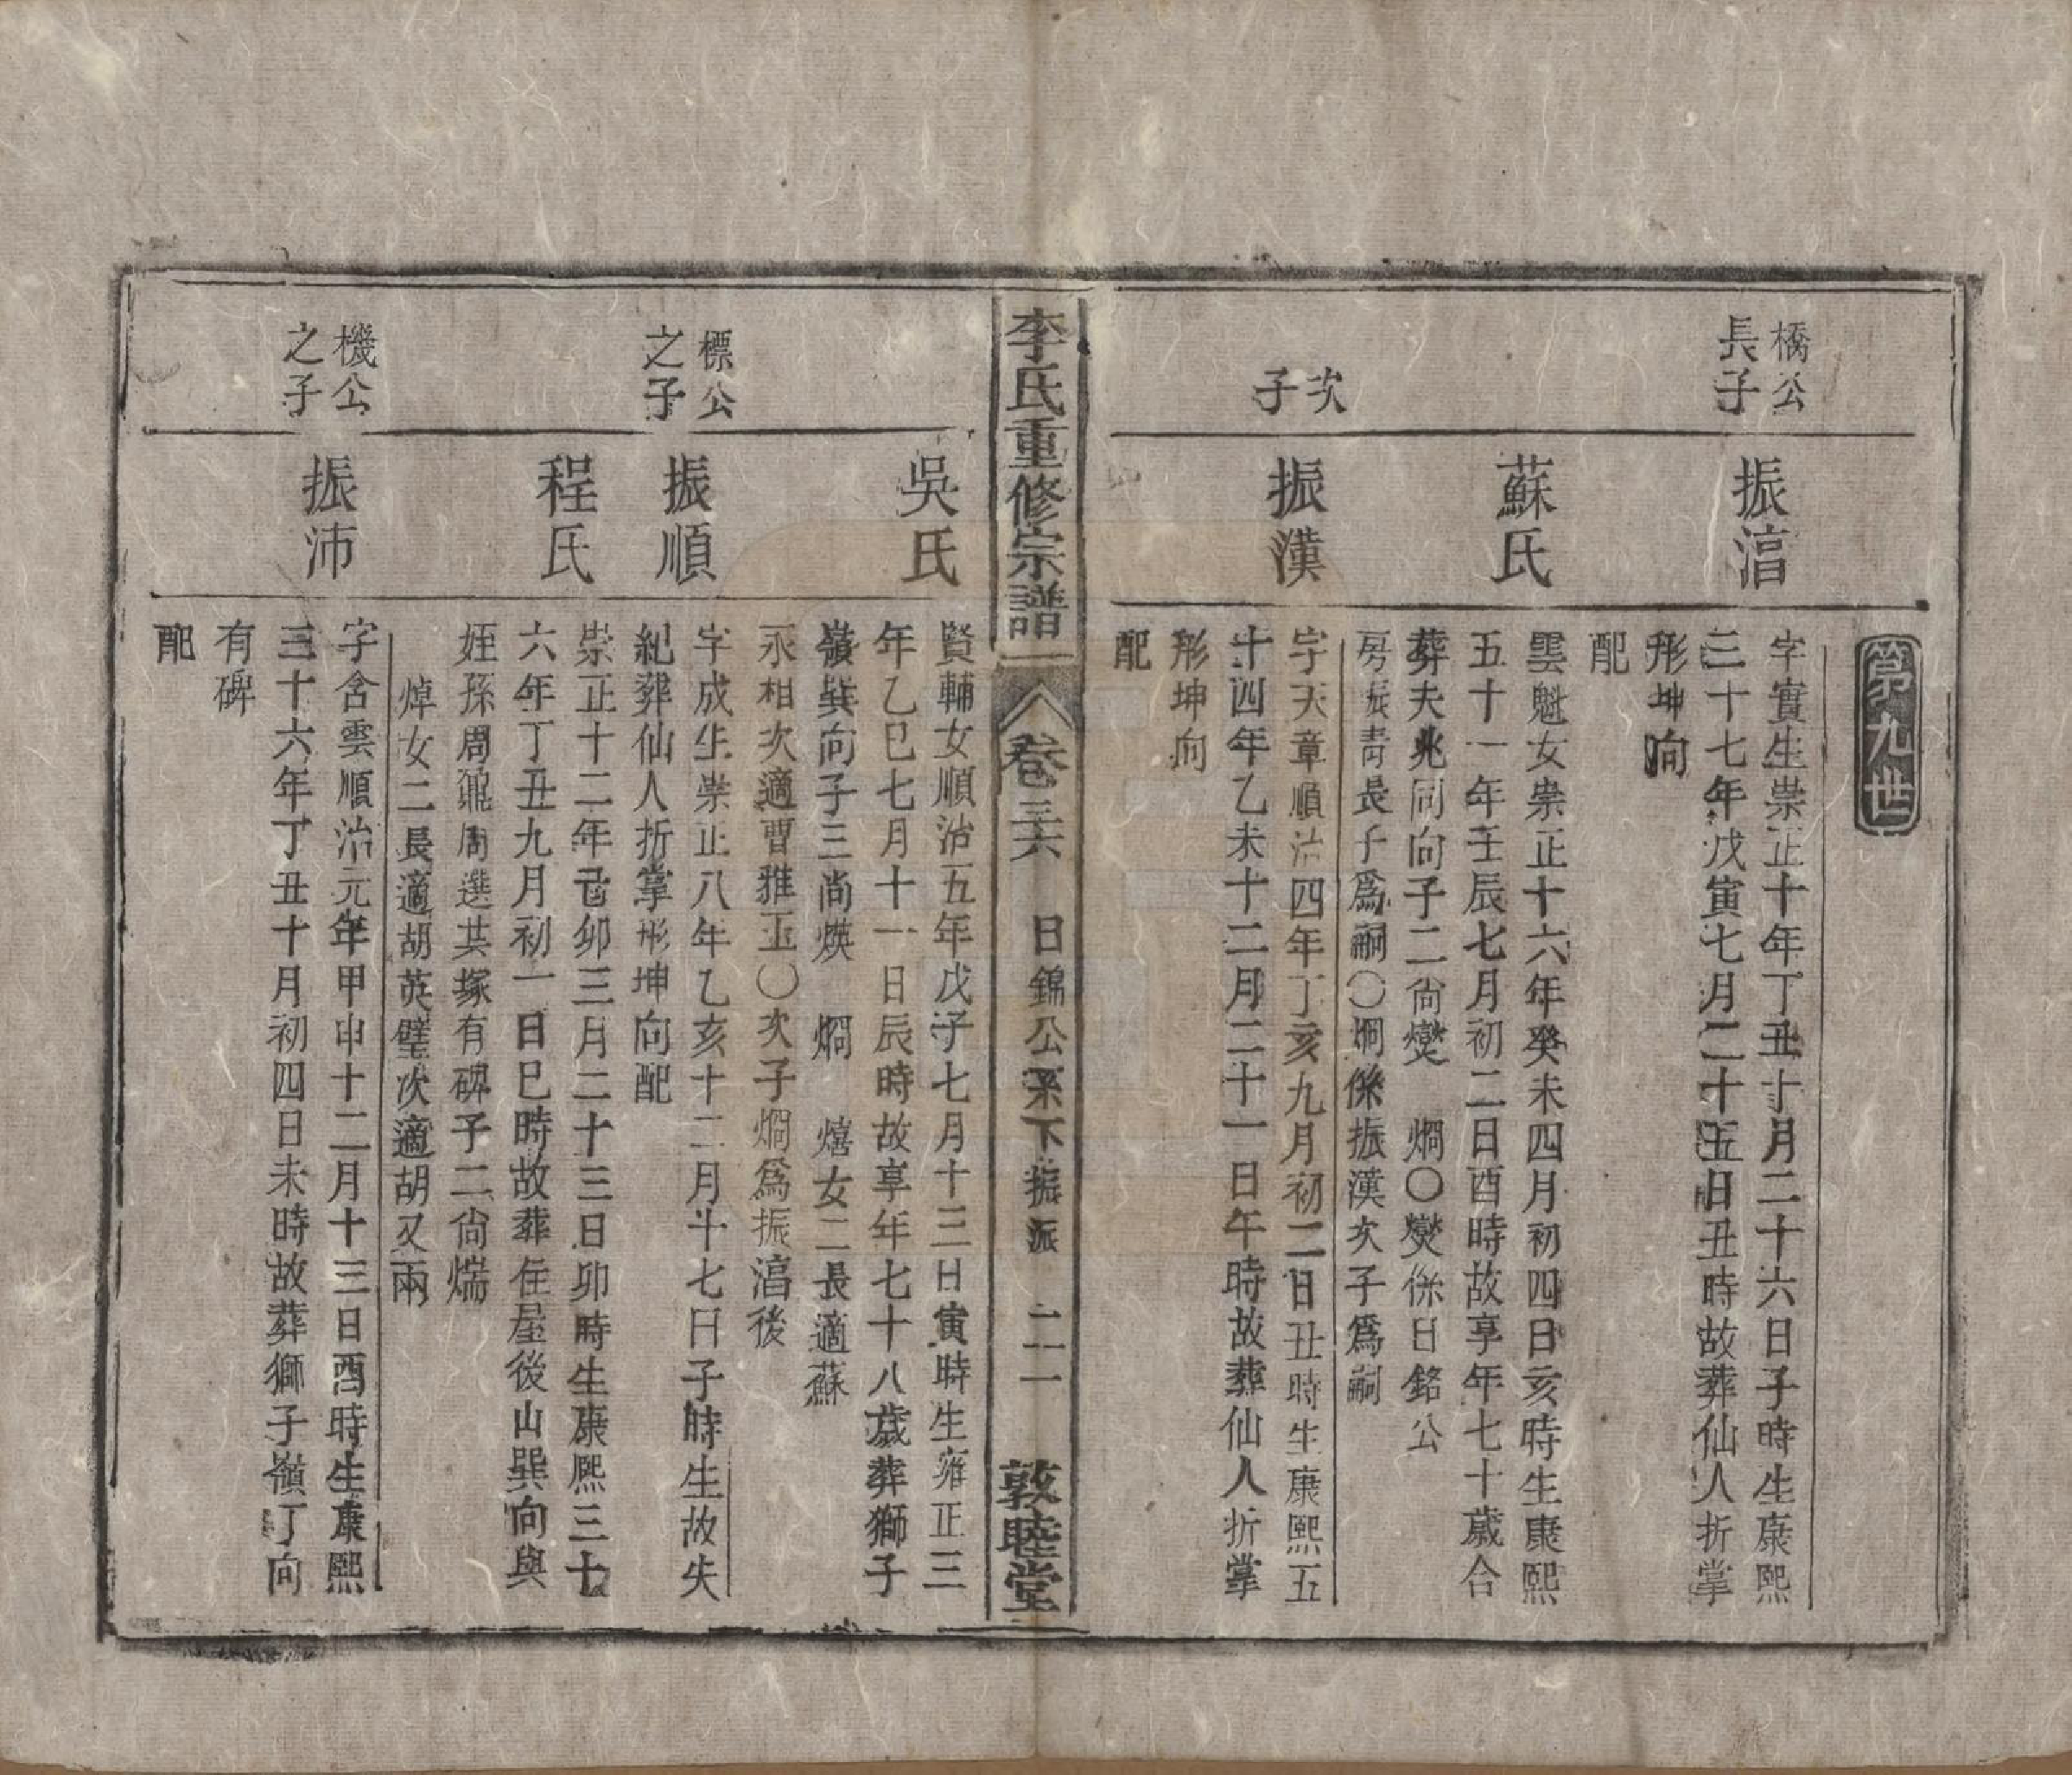 第九世
橋公
長子
振湻
字實生崇正十年丁丑十月二十六日子時生康熙
三十七年戊寅七月二十五日丑時故葬仙人折掌
形坤向
配
蘇氏
雲魁女崇正十六年癸未四月初四日亥時生康熙
五十一年壬辰七月初二日酉時故享年七十歲合
葬夫兆同向子二尚爕 燗〇爕係日銘公
房振青長子爲嗣〇燗係振漢次子爲嗣
次
子
振漢
字天章順治四年丁亥九月初二日丑時生康熙五
十四年乙未十二月二十一日午時故葬仙人折掌
形坤向
配
李氏重修宗譜
卷三六
日錦公系下振派
二一
敦睦堂
吳氏
賢輔女順治五年戊子七月十三日寅時生雍正三
年乙巳七月十一日辰時故享年七十八歲葬獅子
嶺巽向子三尚煐 燗 熺女二長適蘇
永相次適曹雅玉〇次子燗爲振湻後
標公
之子
振順
字成生崇正八年乙亥十二月十七日子時生故失
紀葬仙人折掌形坤向配
程氏
崇正十二年己卯三月二十三日卯時生康熙三十
六年丁丑九月初一日巳時故葬住屋後山巽向與
姪孫周鼐周選共塚有碑子二尚煓
焯女二長適胡英璧次適胡又兩
機公
之子
振沛
字含雲順治元年甲申十二月十三日酉時生康熙
三十六年丁丑十月初四日未時故葬獅子嶺丁向
有碑
配